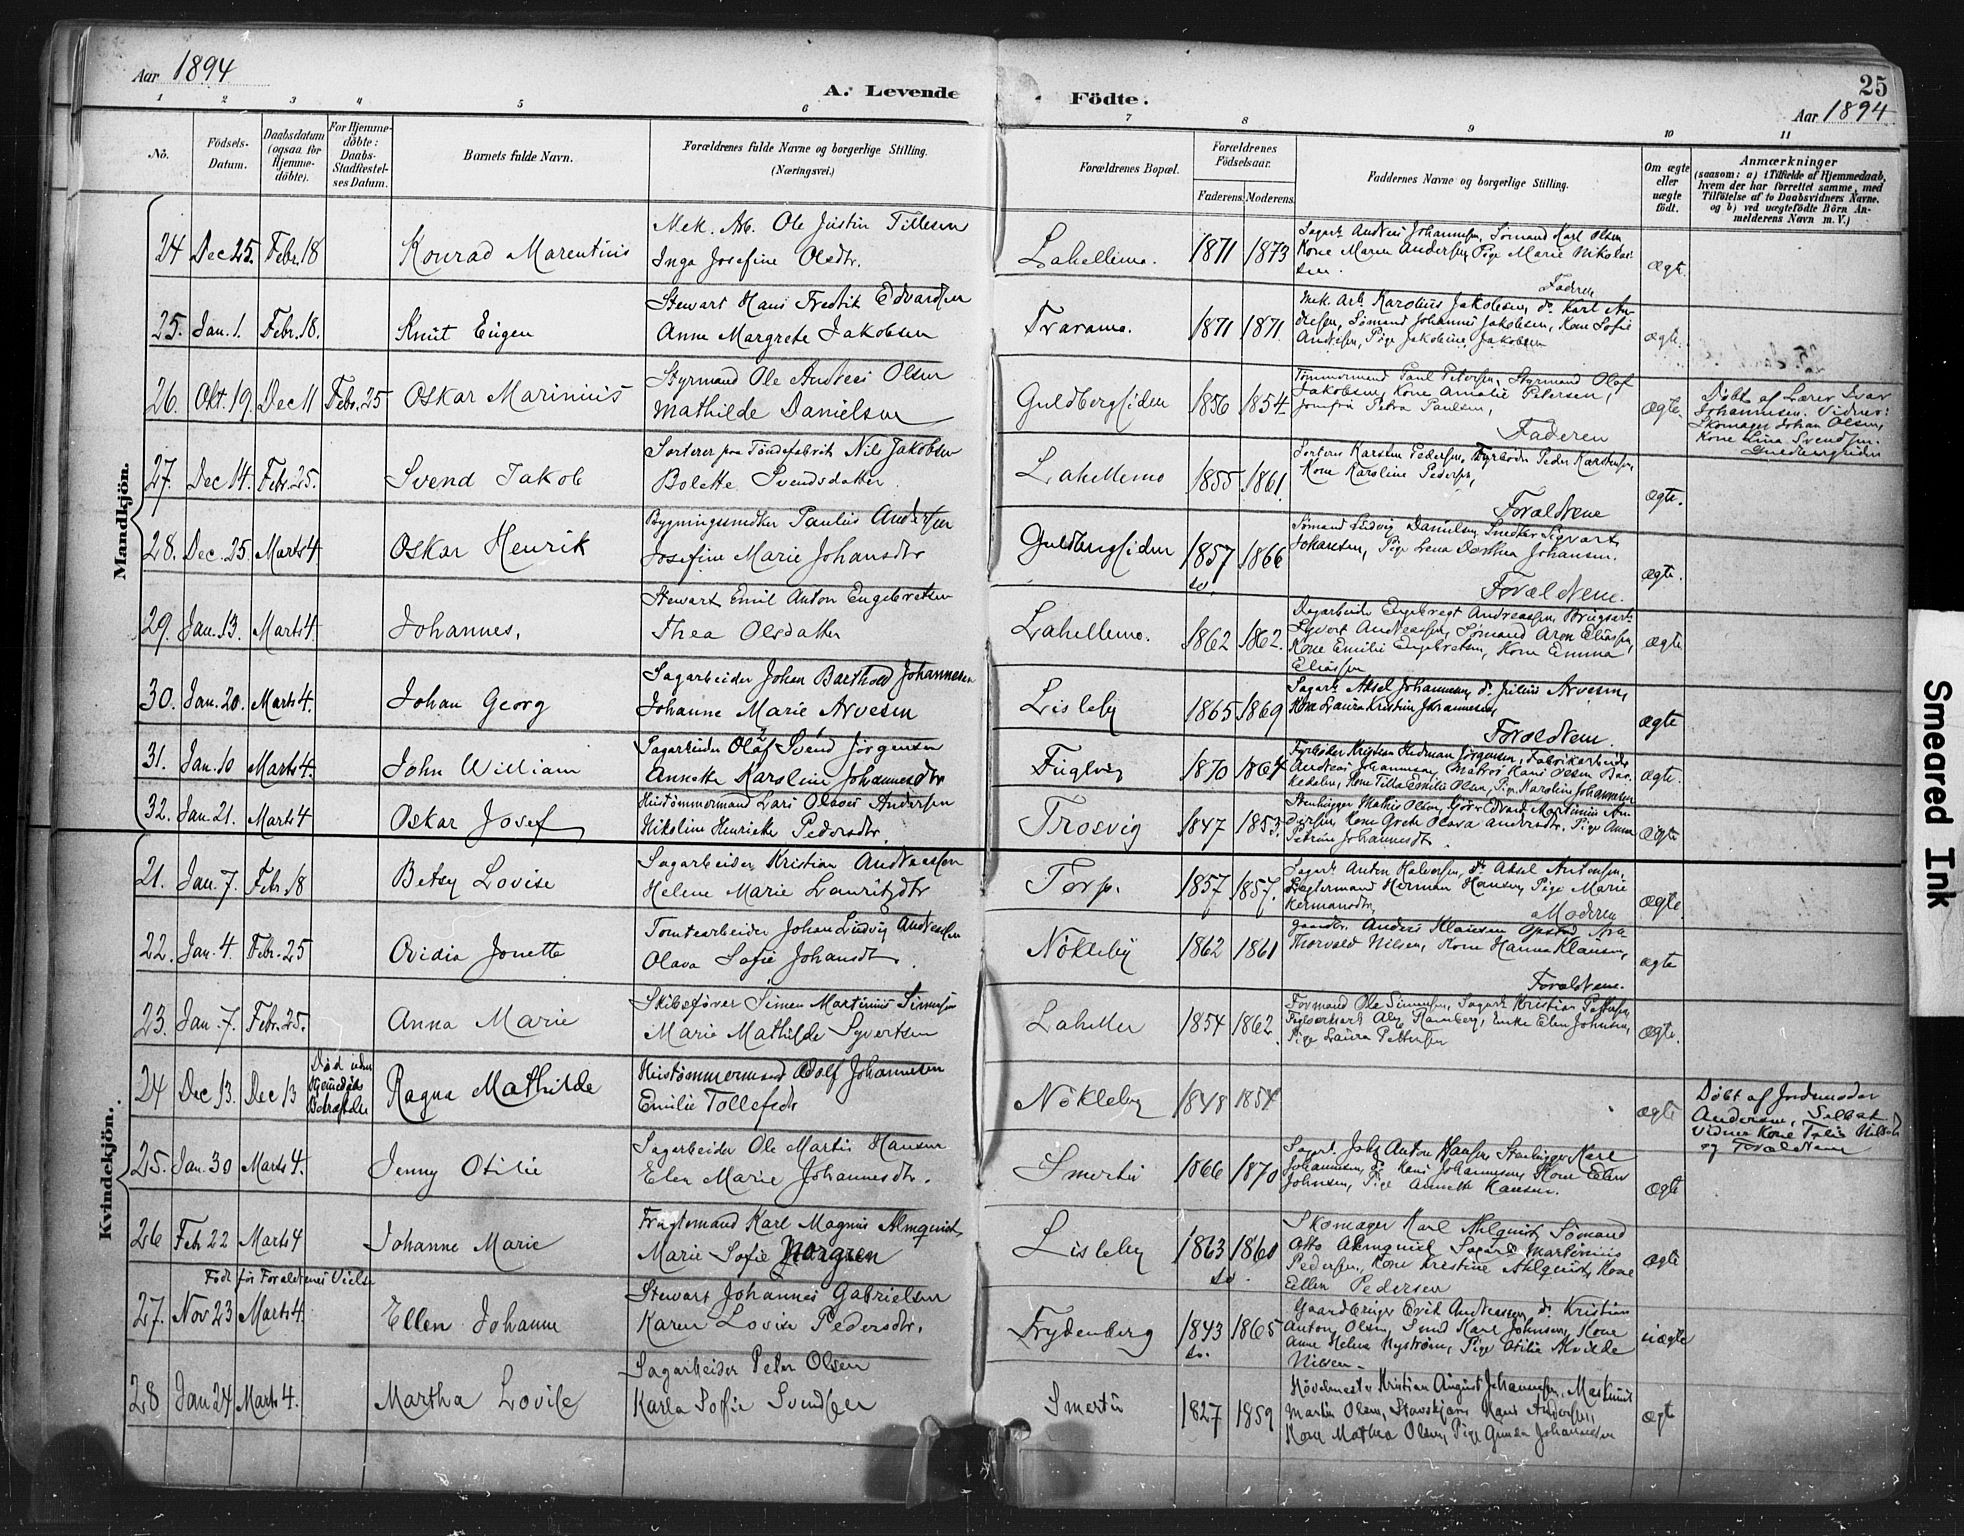 Aar 1894
A. Levende Födte.
25
Aar 1894
1 2 3 4 5 6 7 8 9 10 11
No.
Födsels-Datum.
Daabsdatum (ogsaa for Hjemme-döbte).
For Hjemme-döbte: Daabs-Stadfæstel-ses Datum.
Barnets fulde Navn.
Forældrenes fulde Navne og borgerlige Stilling. (Næringsvei.)
Forældrenes Bopæl.
Forældrenes Födselsaar.
Faderens Moderens
Faddernes Navne og borgerlige Stilling.
Om ægte eller uægte födt.
Anmærkninger
(saasom: a) i Tilfælde af Hjemmedaab, hvem der har forrettet samme, med Tilföielse af to Daabsvidners Navne, og b) ved uægtefödte Börn An-melderens Navn m. V.)
Mandkjön.
24 Dec 25. Febr. 18 Konrad Marentius
Mek. Arb. Ole Justin Tillesen
Inga Josefine Olsdtr.
Lahellemo. 1871 1873
Sagarb. Andreas Johannesen, Sömand Karl Olsen
Kone Maren Andersen, Pige Marie Nikolai-
sen. Faderen
ægte.
25. Jan. 1. Febr. 18. Knut Eugen
Stewart Hans Fredrik Edvardsen
Anne Margrete Jakobsen
Traramo. 1871 1871.
Mek. Arb. Karolius Jakobsen, do. Karl An-
dresen, Sömand Johannes Jakobsen, Kone Sofie
Andresen, Pige Jakobine Jakobsen
ægte.
26. Okt. 19. Dec 11 Febr. 25 Oskar Marinius
Styrmand Ole Andreas Olsen
Mathilde Danielsen
Guldbergsiden 1856 1854.
Tömmermand Paul Petersen, Styrmand Olaf
Jakobsen, Kone Amalie Petersen,
Jomfru Petra Paulsen,
Faderen
ægte.
Döbt af Lærer Ivar
Johannesen. Vidner:
Skomager Johan Olsen,
Kone Lina Svendsen.
Guldbergsiden
27. Dec 14. Febr. 25. Svend Jakob
Sorterer paa Töndefabrik Nils Jakobsen
Bolette Svendsdatter
Lahellemo 1855 1861.
Sorterer Karsten Pedersen, Fyrböder Peder Karstensen,
Kone Karoline Pedersen,
Forældrene
ægte.
28. Dec. 25 Marts 4. Oskar Henrik
Bygningssnedker Paulus Andersen
Josefine Marie Johansdtr
Guldbergsiden 1857 1866
sv.
Sömand Ludvig Danielsen, Snedker Sigvart
Johansen, Pige Lena Dorthea Johansen.
Forældrene.
ægte.
29. Jan. 13. Marts 4. Johannes.
Stewart Emil Anton Engebretsen
Thea Olsdatter
Lahellemo. 1862 1862.
Dagarbeider Engebregt Andreassen, Brugsarb.
Syvert Andreassen, Sömand Aron Eliassen,
Kone Emilie Engebretsen, Kone Emma
Eliassen
ægte.
30. Jan. 20. Marts 4. Johan Georg
Sagarbeider Johan Barthold Johannesen
Johanne Marie Arvesen
Lisleby 1865 1869
Sagarb. Aksel Johannesen, do. Julius Arvesen,
Kone Laura Kristine Johannesen,
Forældrene.
ægte
31. Jan. 10 Marts 4. John William
Sagarbeider Olaf Svend Jörgensen
Annette Karoline Johannesdtr
Fuglevig 1870 1864
Fyrböder Kristian Jörgensen, Fabrikarbeider
Andreas Johannesen, Matros Hans Olsen
Kone Emilie Olsen, Pige Karoline Johannesen
ægte.
32. Jan. 21. Marts 4 Oskar Josef
Hustömmermand Lars Olaves Andersen
Nikoline Henriette Pedersdtr
Trosvig 1847 1853.
Stenhugger Mathis Olsen, Edvard Martinius An-
dersen, Kone Grete Olava Andersdtr. Pige Anna
Petrine Johannesdtr.
ægte
Kvindekjön.
21. Jan. 7. Febr. 18 Betsy Lovise
Sagarbeider Kristian Andreassen
Helene Marie Lauritzdtr
Torp. 1857 1857.
Sagarb. Anton Halvorsen, do. Aksel Antonsen,
Fragtemand Herman Hansen, Pige Marie
Hermansdtr,
Moderen
ægte.
22. Jan. 4. Febr. 25 Ovidia Jonette
Tomtearbeider Johan Ludvig Andreassen
Olava Sofie Johansdtr.
Nökleby 1862 1861
Gaardbr. Anders Klausen Opstad, Arb.
Thorvald Nilsen, Kone Hanna Klausen,
Forældrene.
ægte
23. Jan. 7. Febr. 25. Anna Marie
Skibsförer Simen Martinius Simensen
Marie Mathilde Syvertsen
Laheller 1854 1862.
Formand Ole Simensen, Sagarb. Kristian Pettersen,
Ramberg, Enke Elen Johnsen,
Pige Laura Pettersen
ægte.
24 Dec 13. Dec 13 Död uden
Hjemmedaabs
Bekræftelse
Ragna Mathilde
Hustömmermand Adolf Johannesen
Emilie Tollefsdtr
Nökleby 1848 1854
ægte
Döbt af Jordemoder
Andersen, Selbak
Vidner Kone Nilsen
og Forældrene
25. Jan. 30 Marts 4. Jenny Otilie
Sagarbeider Ole Martin Hansen
Elen Marie Johannesdtr.
Smertu 1866 1870
Sagarb. Johs Anton Hansen, Stenhugger Karl
Johannesen, do. Hans Johannesen, Kone Elen
Johnsen, Pige Annette Hansen.
ægte
26 Feb 22 Marts 4 Johanne Marie
Fragtemand Karl Magnus Almquist,
Marie Sofie Norgren
Lisleby 1863 1860
sv.
Skomager Karl Ahlquist, Sömand
Otto Almquist, Sagarb. Martinius
Pedersen, Kone Kristine Ahlquist, Kone
Ellen Pedersen
ægte
Födt før Forældrenes Vielse
27. Nov 23 Marts 4. Ellen Johanne
Stewart Johannes Gabrielsen
Karen Lovise Pedersdtr.
Frydenberg 1843 1865
sv.
Gaardbruger Erik Andreassen, do. Kristian
Anton Olsen, Smed Karl Johnsen, Kone
Anne Helene Nyström, Pige Otilia Alvilde
Nilsen.
uægte
28 Jan 24 Marts 4. Martha Lovise
Sagarbeider Peter Olsen
Karla Sofie Svendsen
Smertu 1827 1859
Hövelmester Kristian August Johannesen, Maskinist
Martin Olsen, Stavskjærer Hans Andersen,
Kone Mathea Olsen, Pige Gunda Johannesen
ægte
Smeared Ink